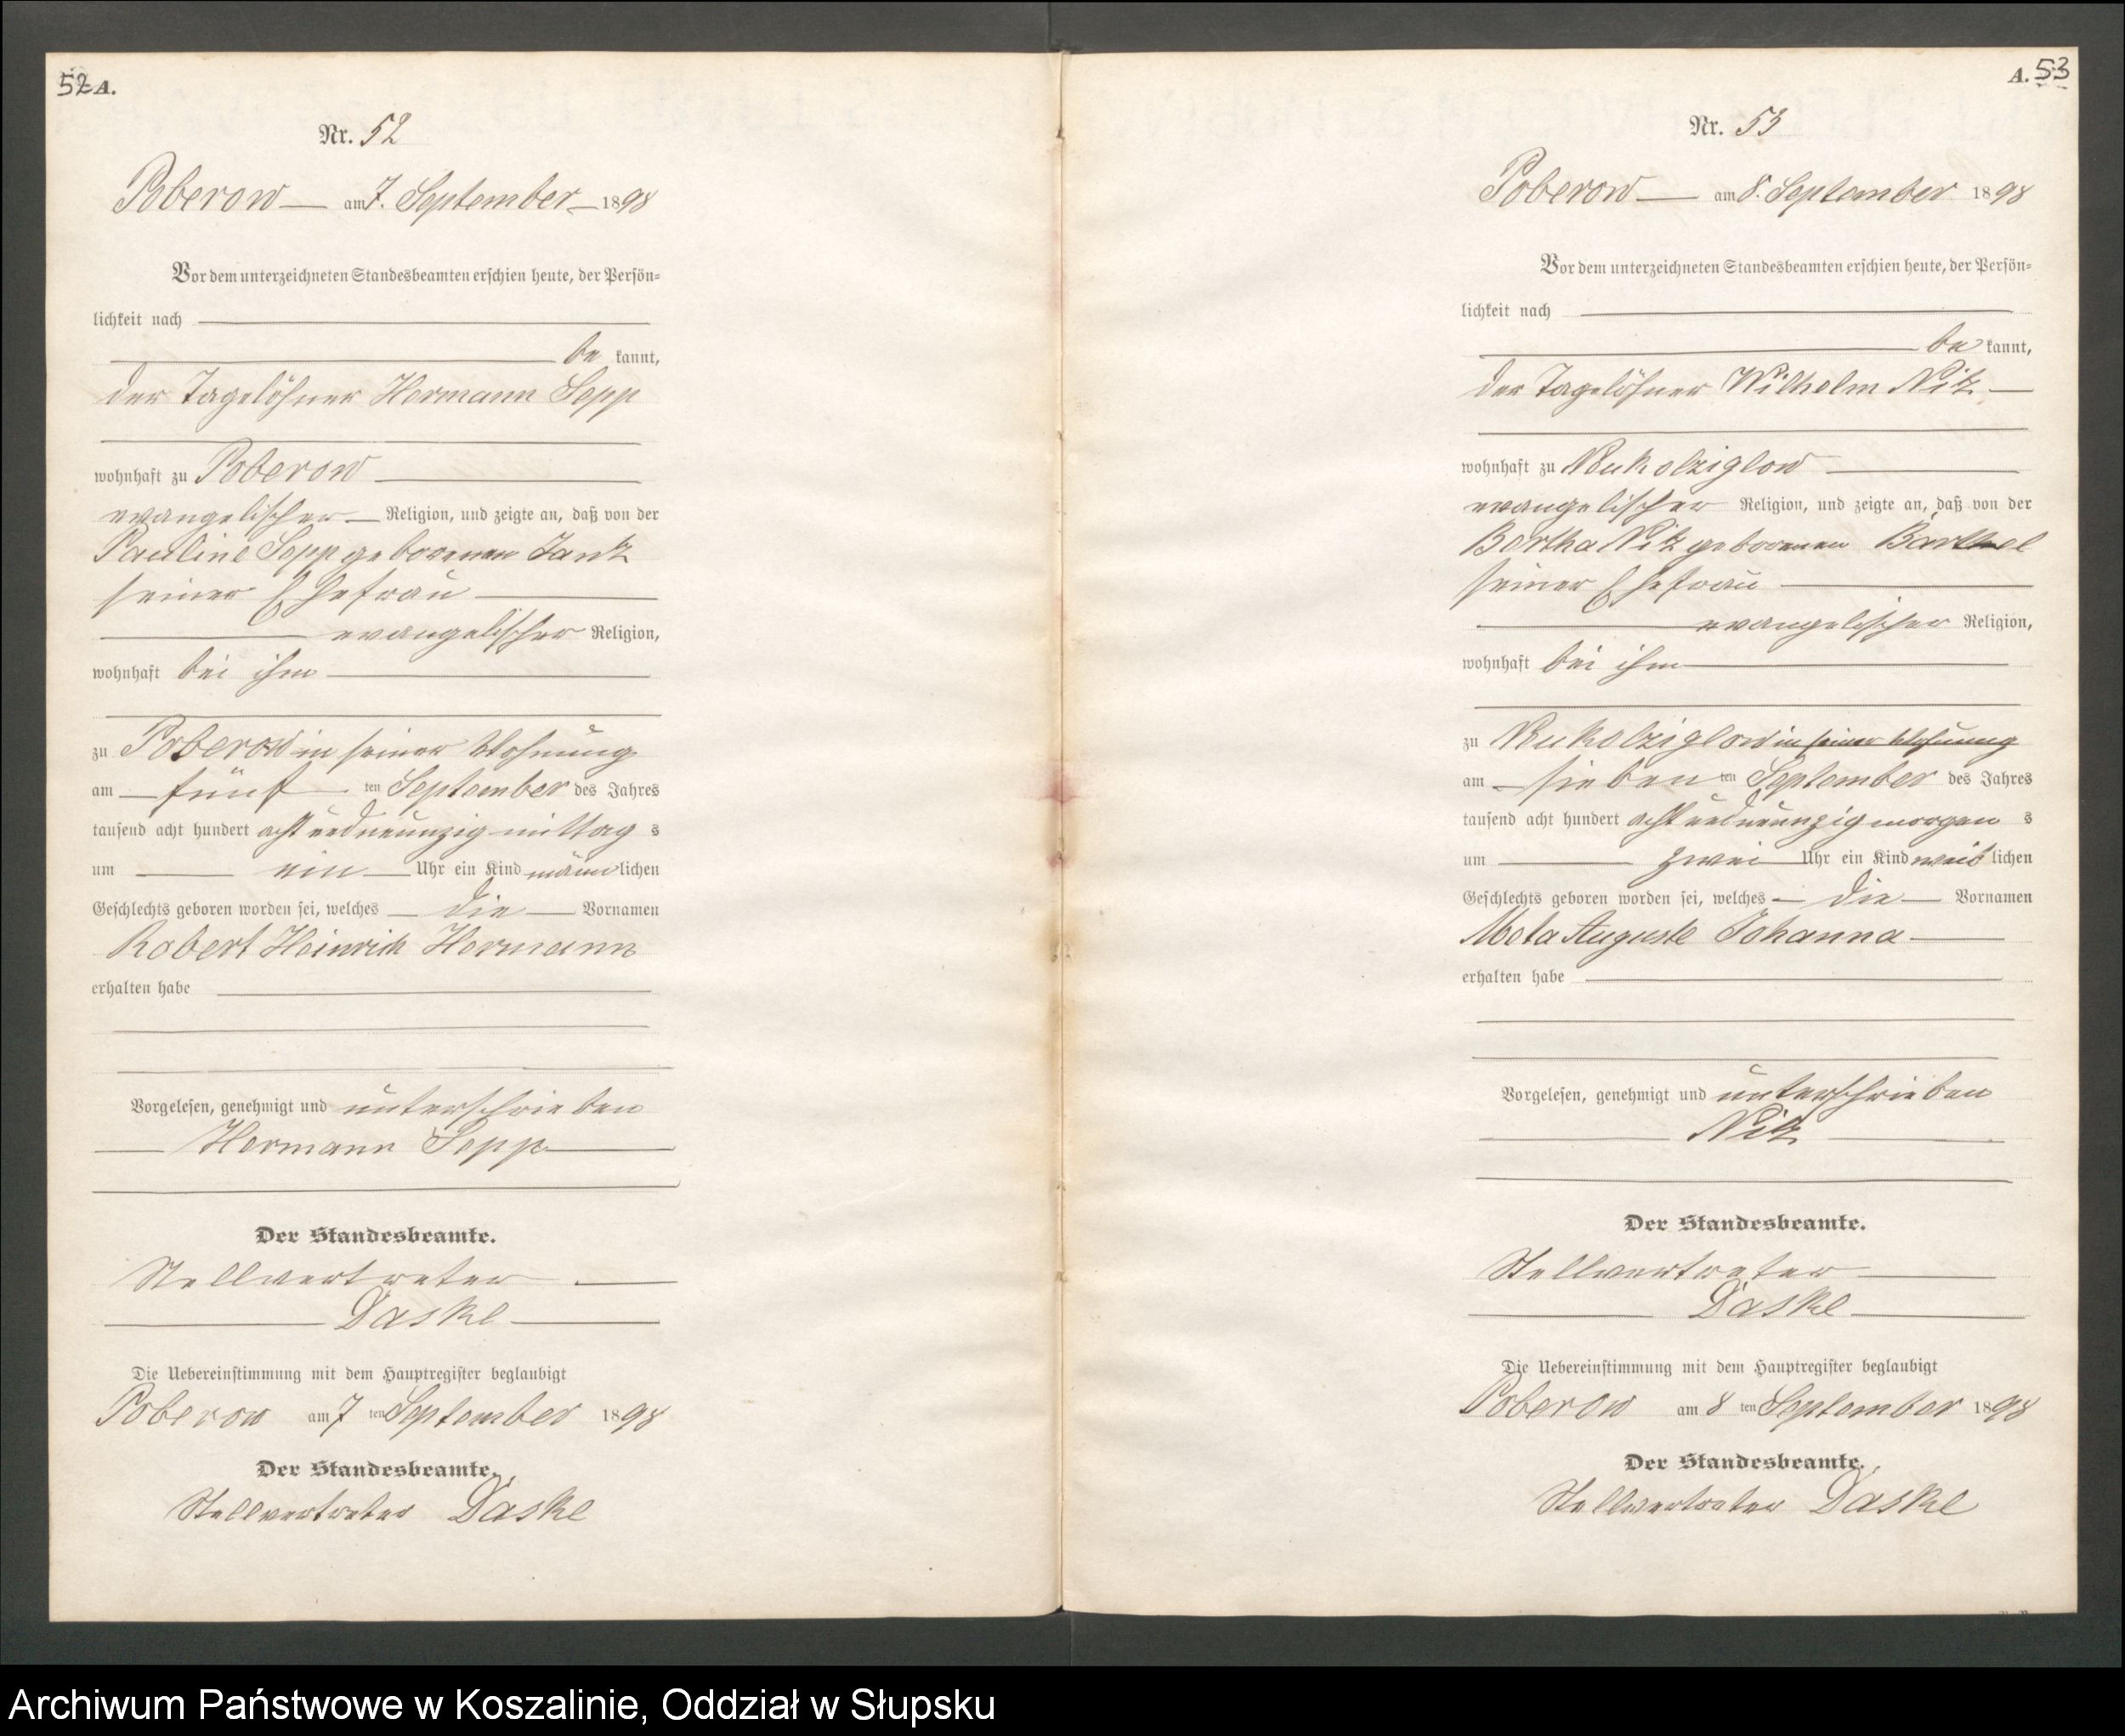 52 A.
Nr. 52
Poberow am 7. September 1898
Vor dem unterzeichneten Standesbeamten erschien heute, der Persön-
lichkeit nach
be kannt,
der Tagelöhner Hermann Sepp
wohnhaft zu Poberow
evangelischer Religion, und zeigte an, daß von der
Pauline Sepp geborenen Jank
seiner Ehefrau
evangelischer Religion,
wohnhaft bei ihm
zu Poberow in seiner Wohnung
am fünf ten September des Jahres
tausend acht hundert acht und neunzig mittag s
um ein Uhr ein Kind männ lichen
Geschlechts geboren worden sei, welches die Vornamen
Robert Heinrich Hermann
erhalten habe
Vorgelesen, genehmigt und unterschrieben
Hermann Sepp
Der Standesbeamte.
Stellvertreter
Daske
Die Uebereinstimmung mit dem Hauptregister beglaubigt
Poberow am 7 ten September 1898
Der Standesbeamte.
Stellvertreter Daske
A. 53
Nr. 53
Poberow am 8. September 1898
Vor dem unterzeichneten Standesbeamten erschien heute, der Persön-
lichkeit nach
be kannt,
der Tagelöhner Wilhelm Nitz
wohnhaft zu Neukolziglow
evangelischer Religion, und zeigte an, daß von der
Bertha Nitz geborenen Barthel
seiner Ehefrau
evangelischer Religion,
wohnhaft bei ihm
zu Neukolziglow in seiner Wohnung
am sieben ten September des Jahres
tausend acht hundert acht und neunzig morgen s
um zwei Uhr ein Kind weib lichen
Geschlechts geboren worden sei, welches die Vornamen
Meta Auguste Johanna
erhalten habe
Vorgelesen, genehmigt und unterschrieben
Nitz
Der Standesbeamte.
Stellvertreter
Daske
Die Uebereinstimmung mit dem Hauptregister beglaubigt
Poberow am 8 ten September 1898
Der Standesbeamte.
Stellvertreter Daske
Archiwum Państwowe w Koszalinie, Oddział w Słupsku